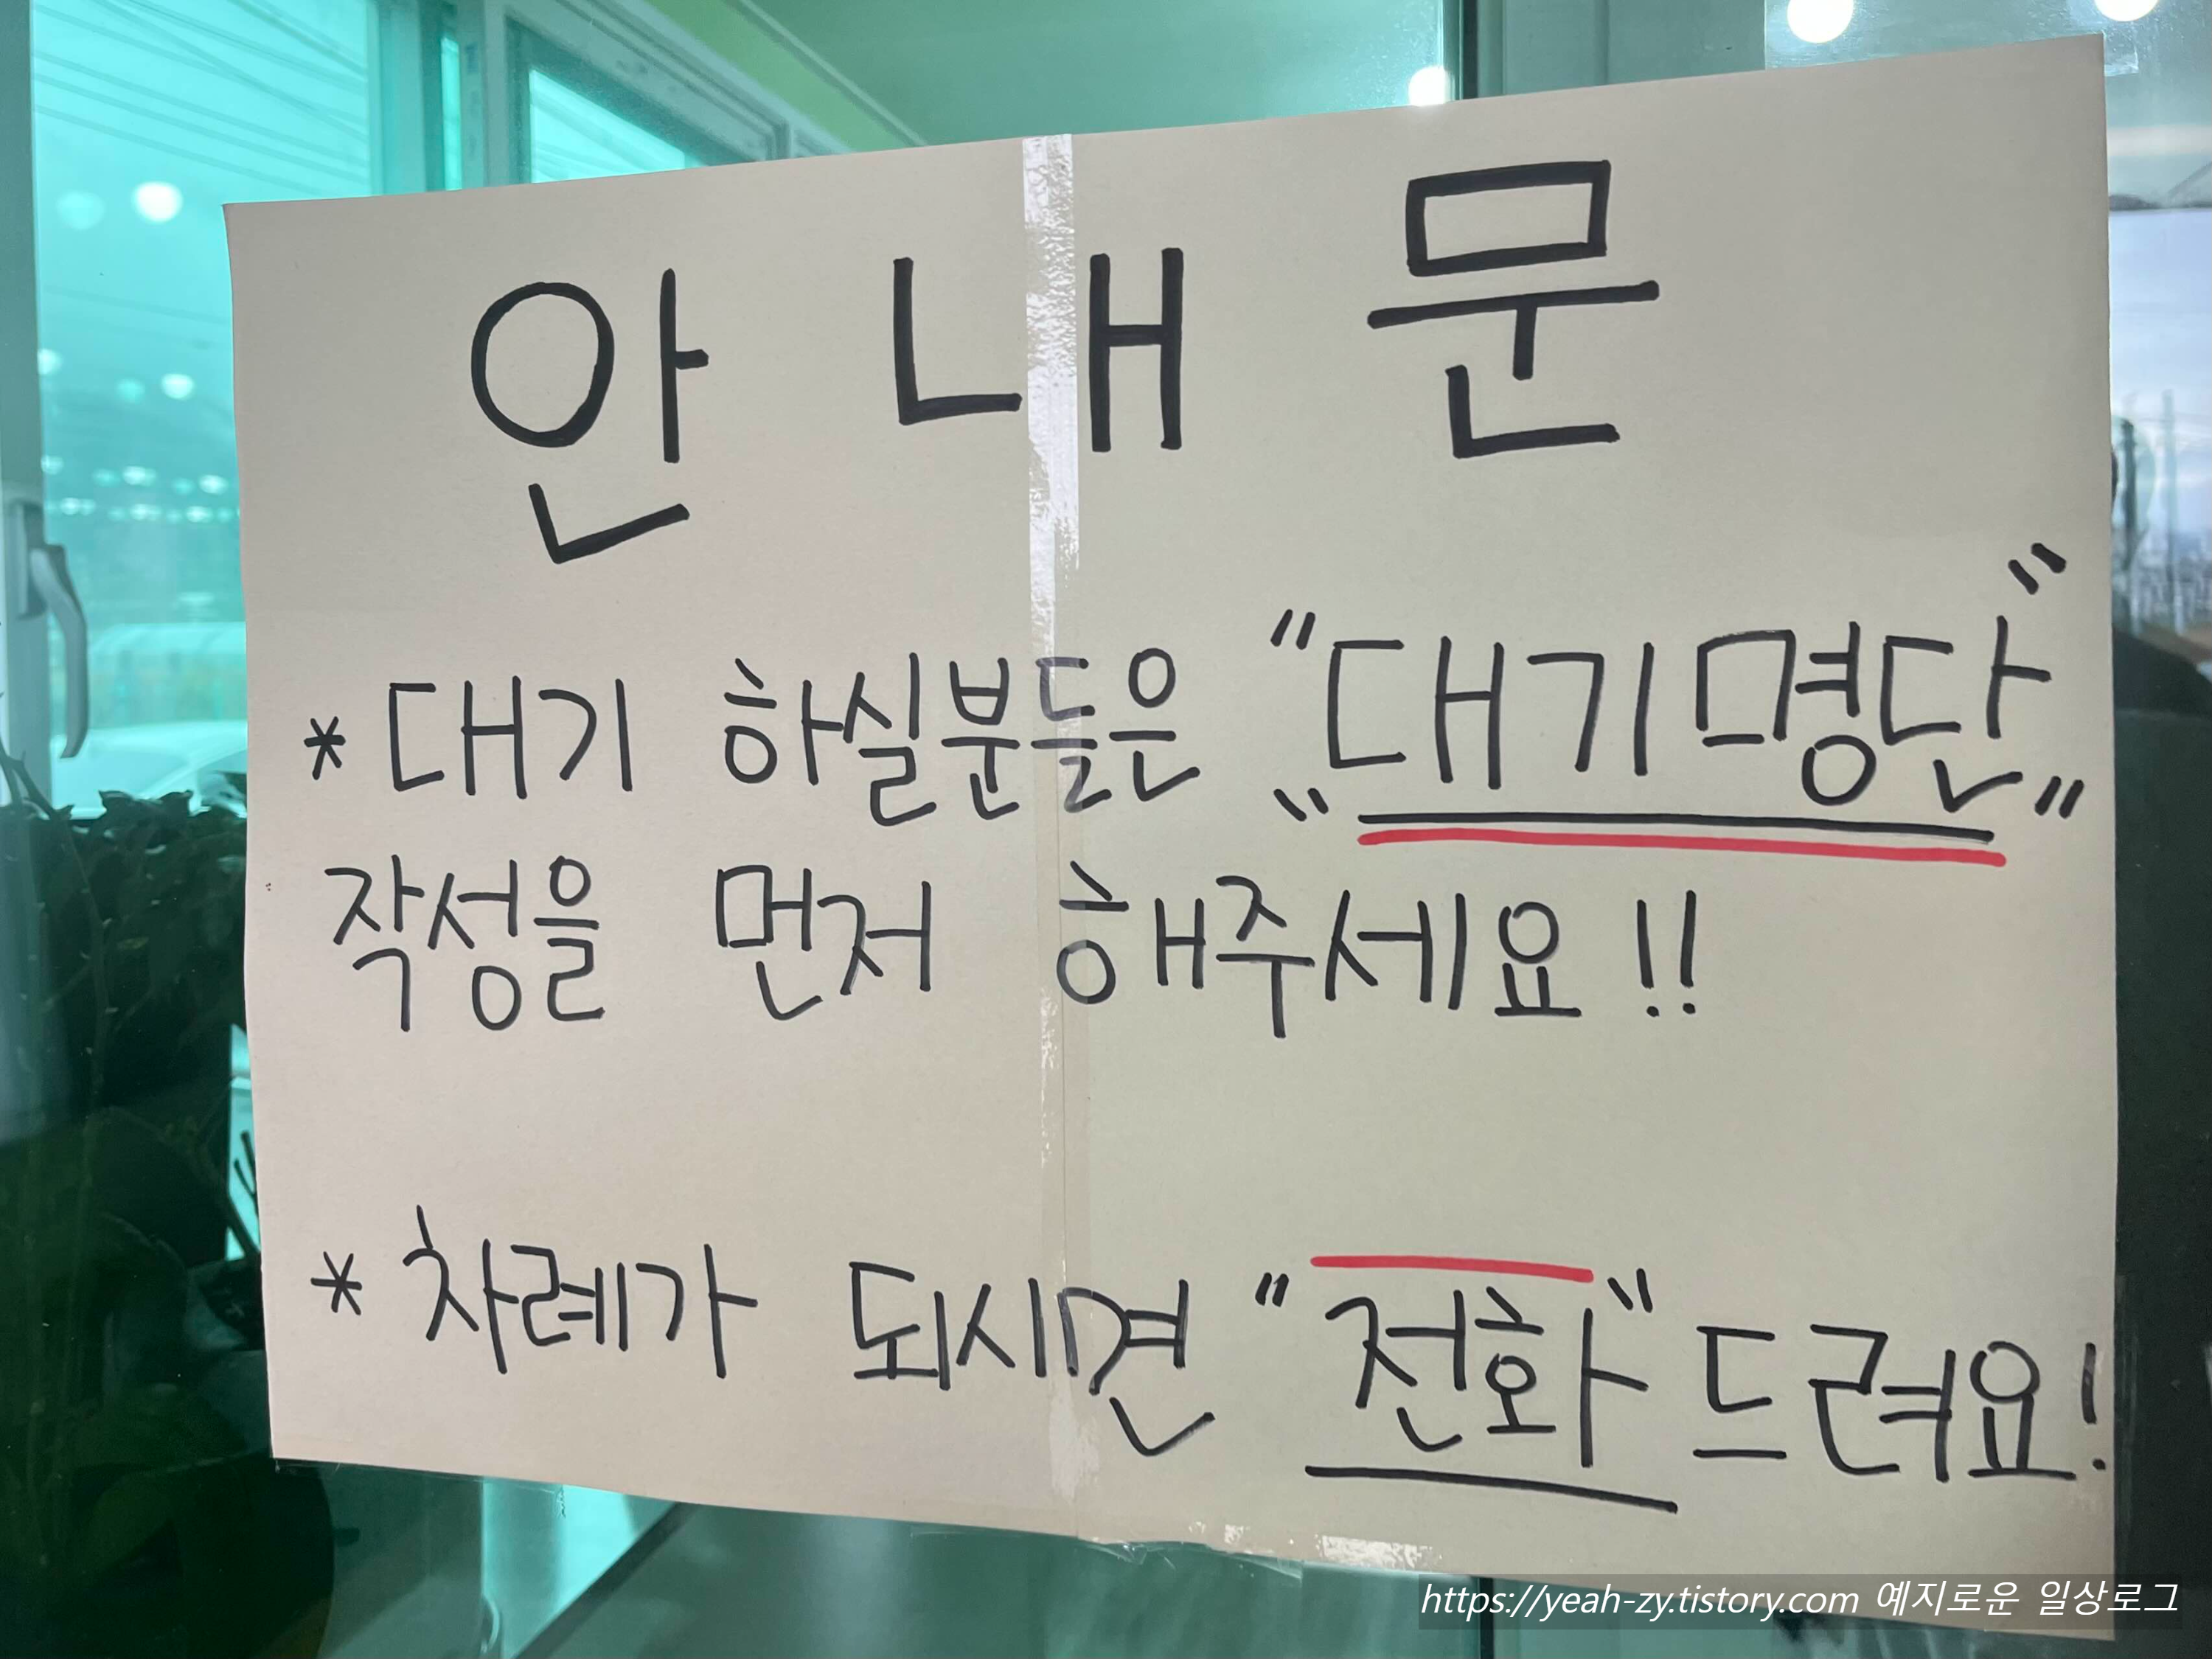 안내문
* 대기 하실분들은 "대기명단"
작성을 먼저 해주세요!!
* 차례가 되시면 "전화" 드려요!
https://yeah-zy.tistory.com 예지로운 일상로그